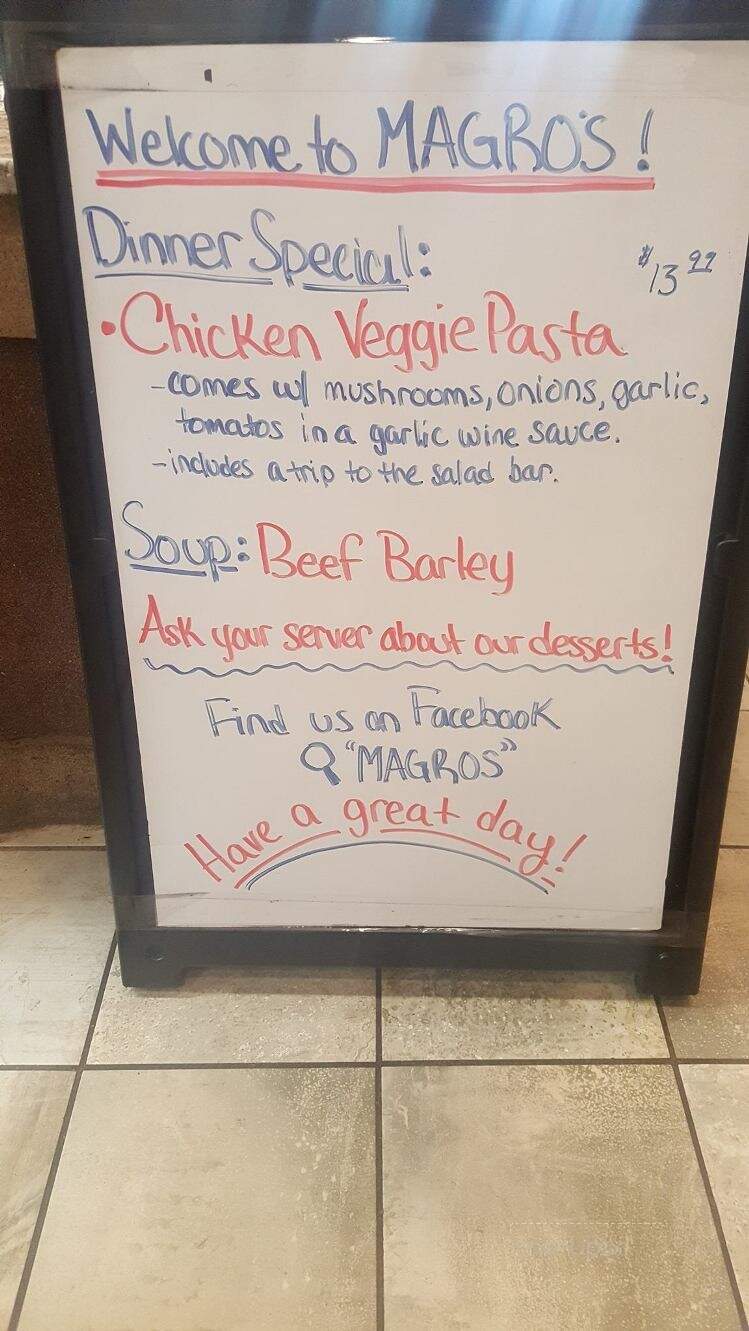 Welcome to MAGRO'S!
Dinner Special:
$13.99
• Chicken Veggie Pasta
- comes w/ mushrooms, onions, garlic,
tomatos in a garlic wine sauce.
- includes a trip to the salad bar.
Soup: Beef Barley
Ask your server about our desserts!
Find us on Facebook
"MAGROS"
Have a great day!